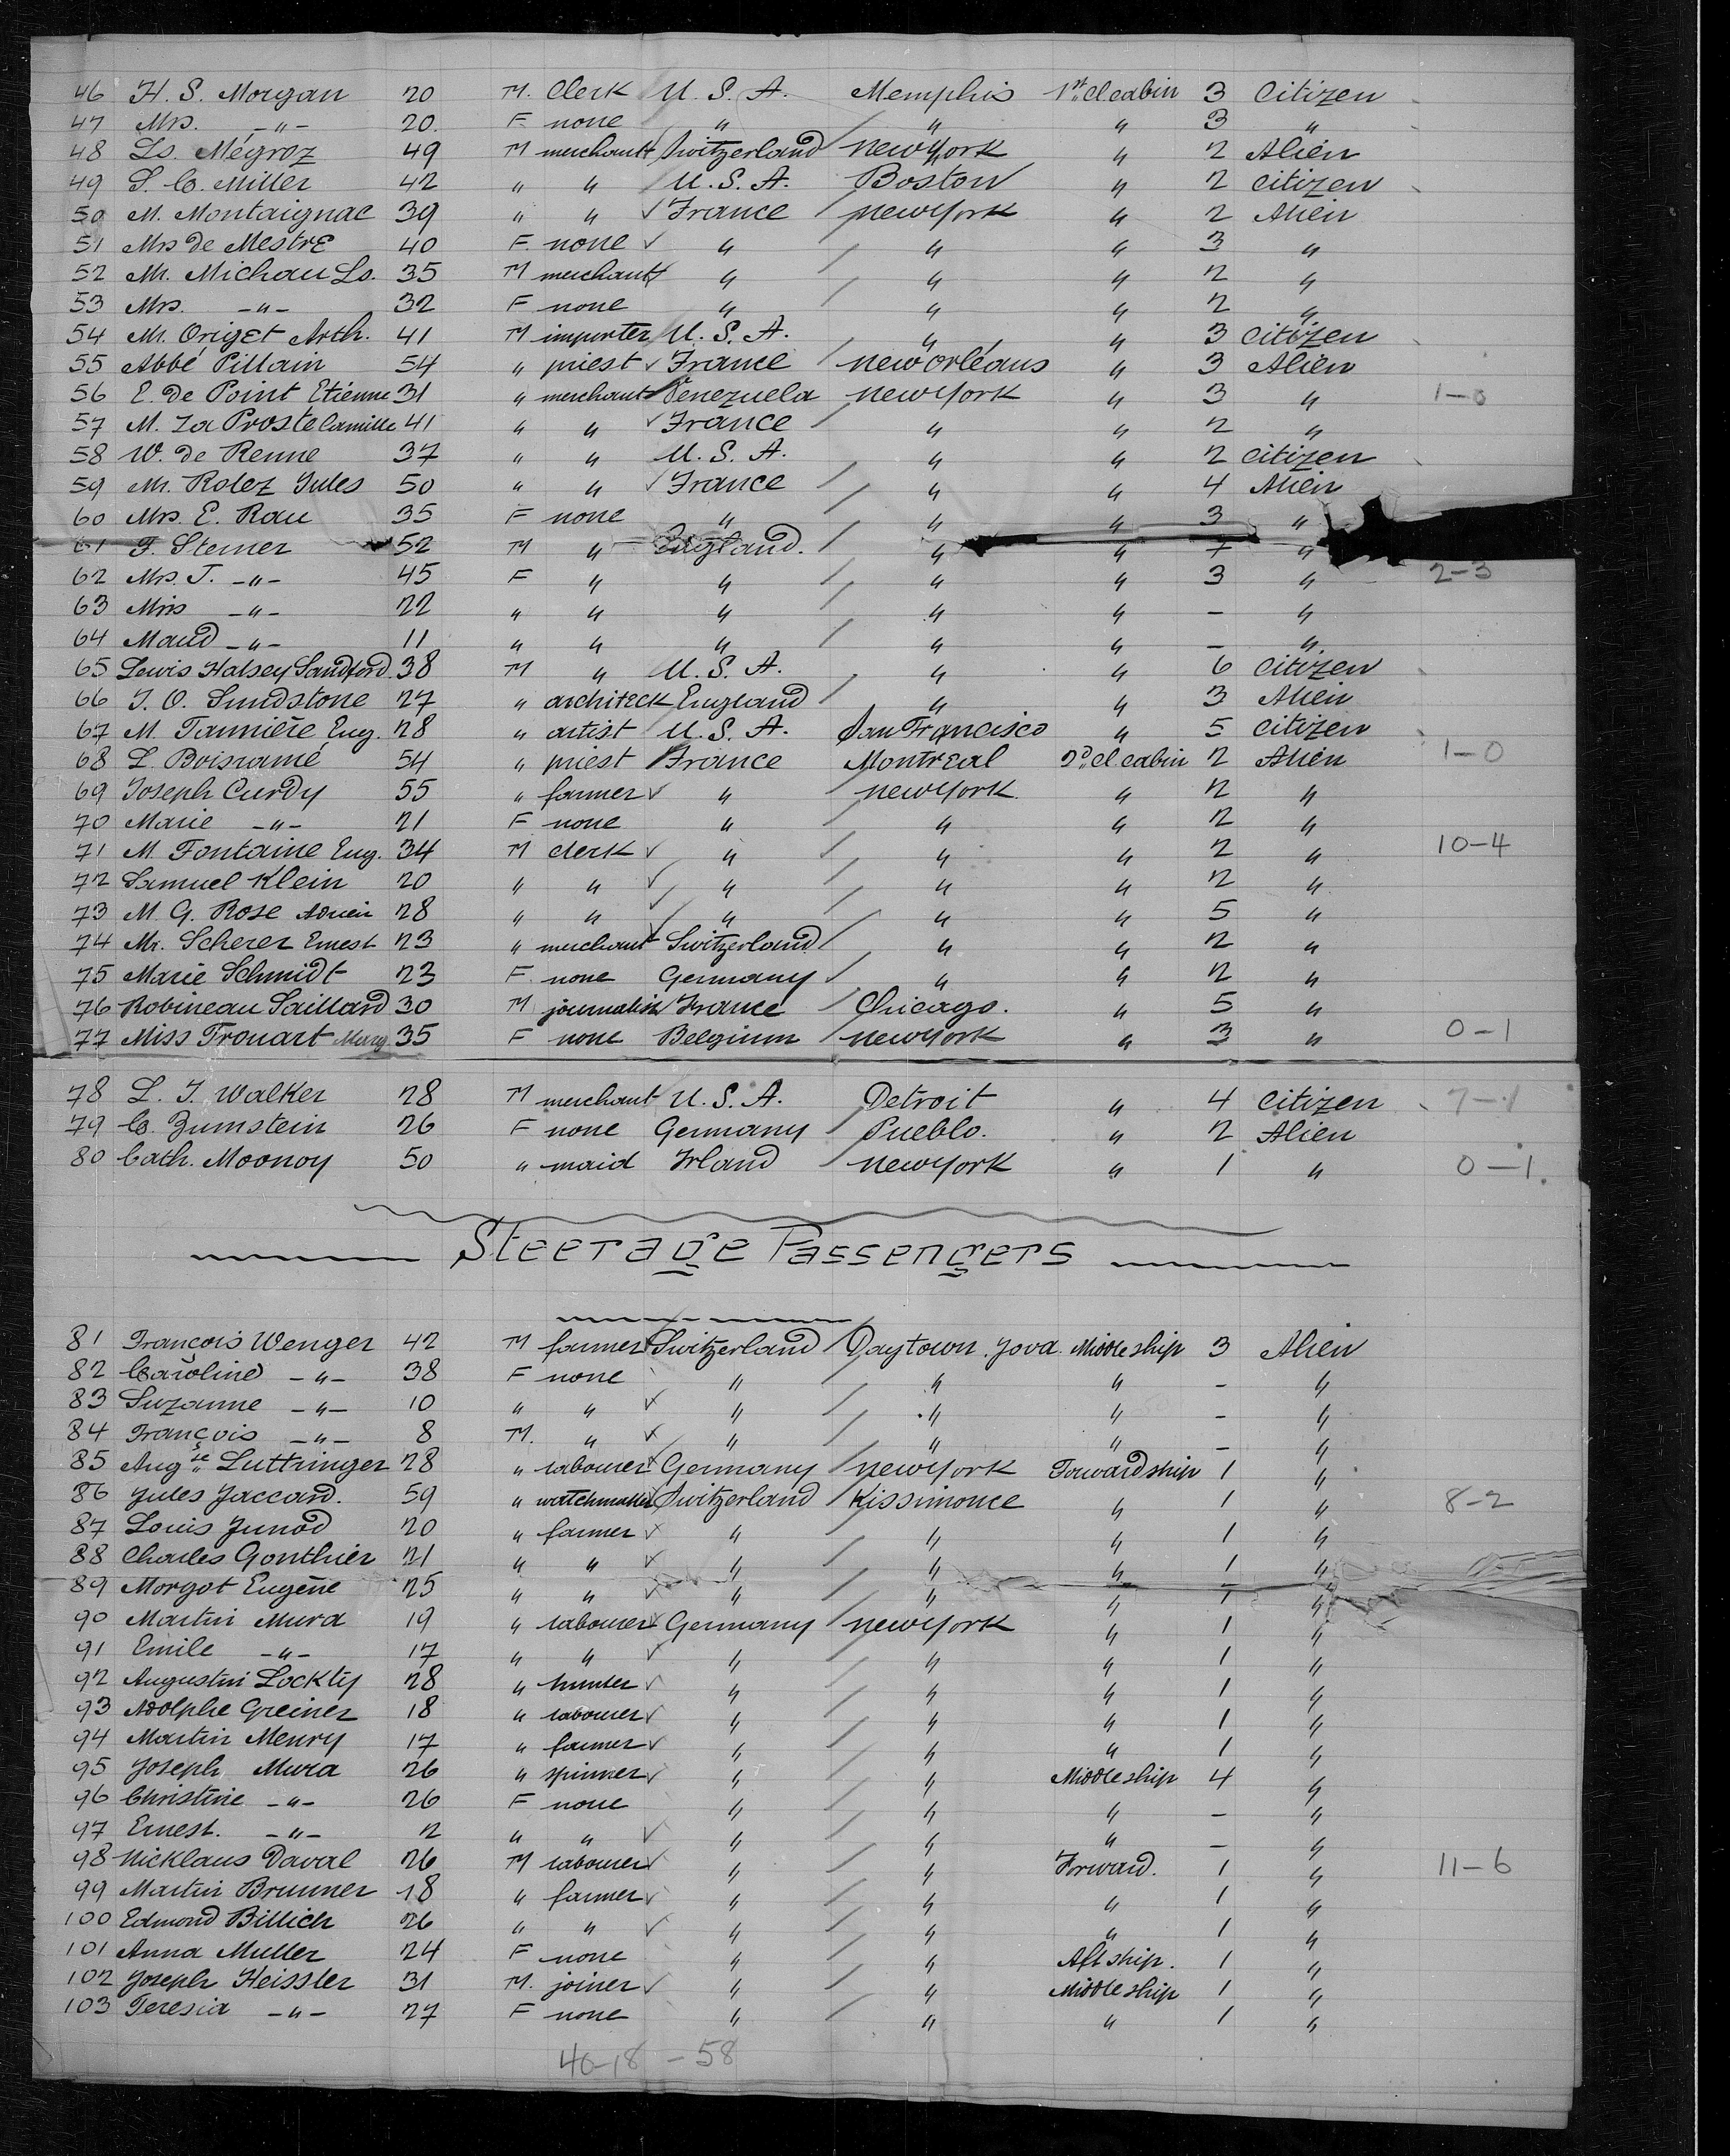 46 H. S. Morgan 20 M. Clerk U. S. A. Memphis 1st cl cabin 3 Citizen
47 Mrs. -"- 20. F none " " " 3 "
48 Ls. Mégroz 49 M merchant Switzerland new york " 2 Alien
49 S. C. Miller 42 " " U. S. A. Boston " 2 citizen
50 M. Montaignac 39 " " France new york " 2 Alien
51 Mrs de Mestre 40 F. none " " " 3 "
52 M. Michau Ls. 35 M merchant " " " 2 "
53 Mrs. -"- 32 F none " " " 2 "
54 M. Origet Arth. 41 M importer U. S. A. " " 3 citizen
55 Abbé Pillain 54 " priest France new orléans " 3 Alien
56 E. de Point Etienne 31 " merchant Venezuela new york " 3 " 1-0
57 M. La Proste Camille 41 " " France " " 2 "
58 W. de Renne 37 " " U. S. A. " " 2 citizen
59 M. Rolez Jules 50 " " France " " 4 Alien
60 Mrs. E. Rau 35 F none " " " 3 "
61 F. Steiner 52 M " England. " " 7 "
62 Mrs. J. -"- 45 F " " " " 3 " 2-3
63 Miss -"- 22 " " " " " - "
64 Maud -"- 11 " " " " " - "
65 Lewis Halsey Sandford 38 M " U. S. A. " " 6 citizen
66 J. O. Sundstone 27 " architeck England " " 3 Alien
67 M. Tannière Eug. 28 " artist U. S. A. San Francisco " 5 citizen
68 L. Boisramé 54 " priest France Montreal 2d cl cabin 2 Alien 1-0
69 Joseph Curdy 55 " farmer " new york. " 2 "
70 Marie -"- 21 F none " " " 2 "
71 M Fontaine Eug. 34 M clerk " " " 2 " 10-4
72 Samuel Klein 20 " " " " " 2 "
73 M. G. Rose Adrien 28 " " " " " 5 "
74 Mr. Scherer Ernest 23 " merchant Switzerland " " 2 "
75 Marie Schmidt 23 F none Germany " " 2 "
76 Robineau Saillard 30 M journalist France Chicago. " 5 "
77 Miss Trouart Marg 35 F none Belgium new york " 3 " 0-1
78 L. J. Walker 28 M merchant U. S. A. Detroit " 4 citizen 7-1
79 C. Zumstein 26 F none Germany Pueblo. " 2 Alien
80 Cath. Moonoy 50 " maid Irland new york " 1 " 0-1.
Steerage Passengers
81 François Wenger 42 M farmer Switzerland Daytown. Jova. Middle ship 3 Alien
82 Caroline -"- 38 F none " " " - "
83 Suzanne -"- 10 " " " " " - "
84 François -"- 8 M. " " " " - "
85 Augte Luttringer 28 " labourer Germany new york Forward ship 1 "
86 Jules Jaccard. 59 " watchmaker Switzerland Kissimonce " 1 " 8-2
87 Louis Junod 20 " farmer " " " 1 "
88 Charles Gonthier 21 " " " " " 1 "
89 Morgot Eugène 25 " " " " " 1 "
90 Martin Mura 19 " labourer Germany new york " 1 "
91 Emile -"- 17 " " " " " 1 "
92 Augustin Locktÿ 28 " hunter " " " 1 "
93 Adolphe Greiner 18 " labourer " " " 1 "
94 Martin Menry 17 " farmer " " " 1 "
95 Joseph Mura 26 " spinner " " Middle ship 4 "
96 Christine -"- 26 F none " " " - "
97 Ernest. -"- 2 " " " " " - "
98 Nicklaus Daval 26 M labourer " " Forward. 1 " 11-6
99 Martin Brunner 18 " farmer " " " 1 "
100 Edmond Billich 26 " " " " " 1 "
101 Anna Muller 24 F none " " Aft ship. 1 "
102 Joseph Heissler 31 M. joiner " " Middle ship 1 "
103 Teresia -"- 27 F none " " " 1 "
40-18 - 58